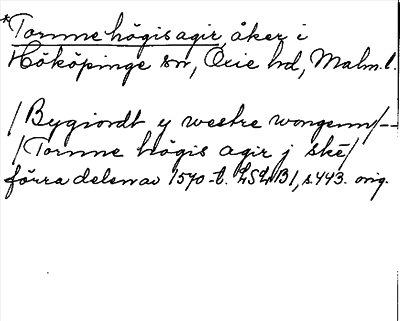 *Tornne högis agir, åker i
Hököpinge sn, Oxie hd, Malm.l.
/Bygiordt y westre wongenn/--
/Tornne högis agir j skē/
förra delen av 1570-t. LSLB1, s.443. orig.